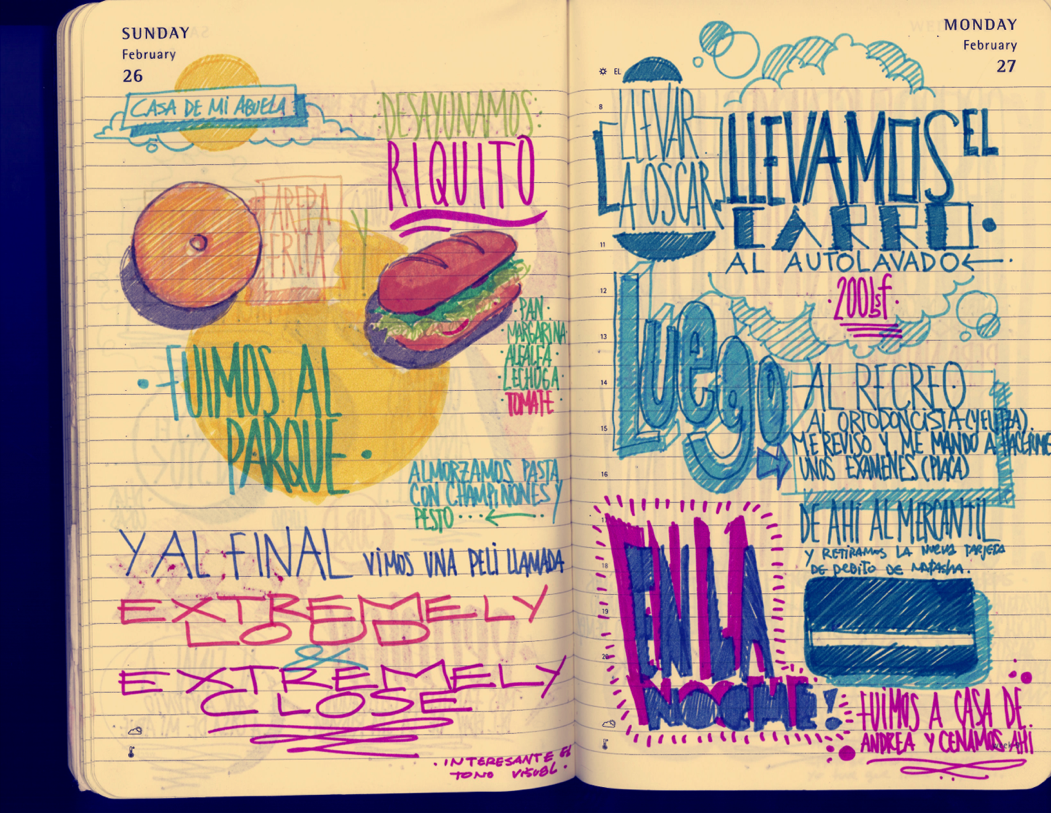 SUNDAY
February
26
CASA DE MI ABUELA
DESAYUNAMOS
RIQUITO
AREPA
FRITA
Y
PAN
MARGARINA
ALFALFA
LECHOGA
TOMATE
FUIMOS AL
PARQUE
ALMORZAMOS PASTA
CON CHAMPIÑONES Y
PESTO
Y AL FINAL VIMOS UNA PELI LLAMADA
EXTREMELY
LOUD
&
EXTREMELY
CLOSE
INTERESANTE EL
TONO VISUAL.
MONDAY
February
27
LLEVAR
A OSCAR
LLEVAMOS EL
CARRO
AL AUTOLAVADO
200bsf
8
11
12
13
14
15
16
18
19
LUEGO
AL RECREO
AL ORTODONCISTA (YELITZA).
ME REVISO Y ME MANDO A HACERME
UNOS EXAMENES (PLACA)
DE AHI AL MERCANTIL
Y RETIRAMOS LA NUEVA TARJETA
DE DEBITO DE NATASHA.
EN LA
NOCHE!
FUIMOS A CASA DE
ANDREA Y CENAMOS AHI